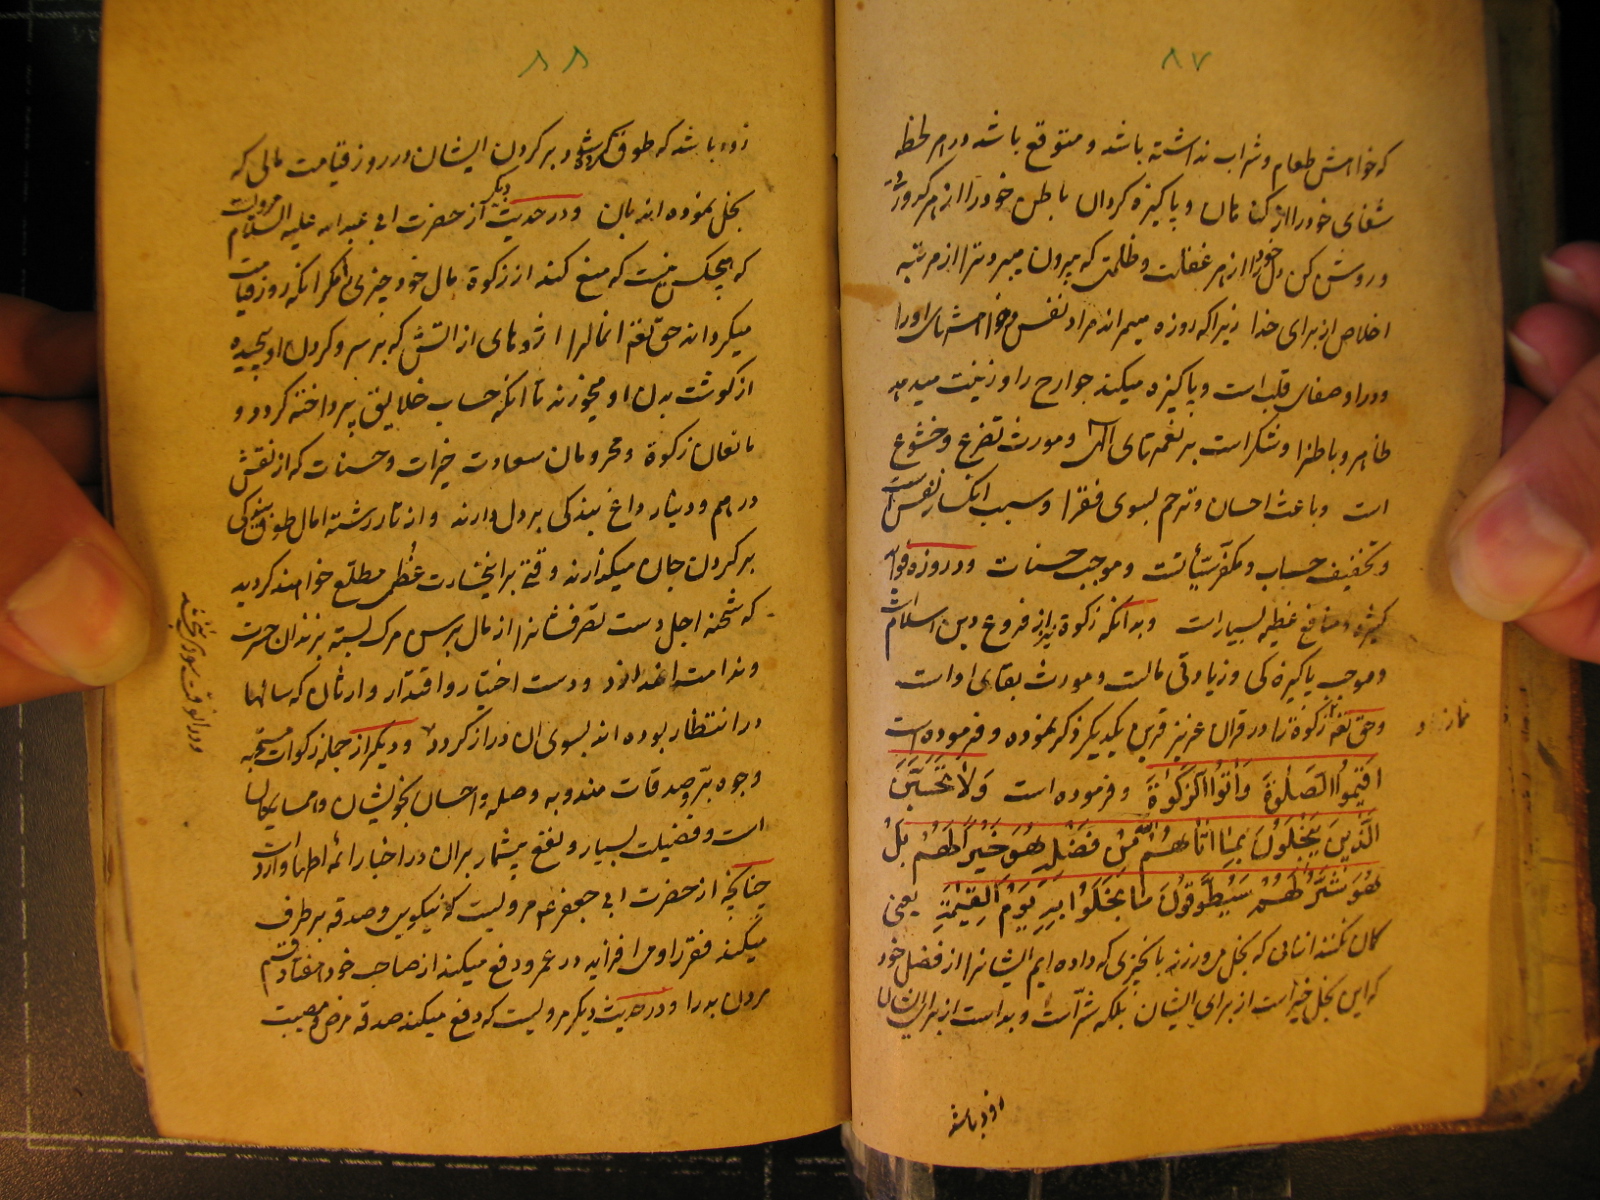 ۸۷
که خواهش طعام و شراب نداشته باشد و متوقع باشد در هر لحظه
شفای خود را از کناهان و پاکیزه کردان باطن خود را از هر کدورتی
و روشن کن دل خود را از هر غفلت و ظلمتی که بیرون میبرد ترا از مرتبه
اخلاص از برای خدا زیرا که روزه میمیراند مراد نفس و خواهشهای او را
و در او صفای قلب است و پاکیزه میکند جوارح را و زینت میدهد
ظاهر و باطن را و شکر است بر نعمتهای الهی و مورث تضرع و خشوع
است و باعث احسان و ترحم بسوی فقرا و سبب انکسار نفس است
و تخفیف حساب و مکفر سیئاتست و موجب حسنات و در روزه فواید
کثیره و منافع عظیمه بسیار است و بدانکه زکوة نیز از فروع دین اسلام است
و موجب پاکیزه کی و زیادتی مالست و مورث بقای او است
و حق تعالی زکوة را در قران عزیز قرین یکدیکر ذکر نموده و فرموده است
نماز و
اَقیمُوا الصَّلوٰةَ وَاٰتُوا الزَّکوٰةَ و فرموده است وَلاٰ تَحْسَبَنَّ
الَّذینَ یَبْخَلُونَ بِمٰا اٰتٰاهُمُ اللّٰه مِنْ فَضْلِهِ هُوَ خَیْراً لَهُمْ بَلْ
هُوَ شَرٌّ لَهُمْ سَیُطَوَّقُونَ مٰا بَخِلُوا بِهِ یَوْمَ الْقِیٰمَةِ یعنی
کمان نکنند انانی که بخل میورزند بانچیزی که داده ایم ایشانرا از فضل خود
که این بخل خیر است از برای ایشان بلکه شر است و بد است از برای ایشان
زود باشد
۸۸
زود باشد که طوق کرده شود بر کردن ایشان در روز قیامت مالی که
بخل نموده اند بان و در حدیث دیکر از حضرت ابی عبد الله علیه السلام مرویست
که هیچکس نیست که منع کند از زکوة مال خود چیزی را مکر انکه روز قیامت
میکرداند حق تعالی انمال را اژدهای از اتش که بر سر و کردن او پیچیده
از کوشت بدن او میخورند تا انکه حساب خلایق پرداخته کردد و
مانعان زکوة و محرومان سعادت خیرات و حسنات که از نقش
درهم و دینار داغ بندکی بر دل دارند و از تار رشته امال طوق بندکی
بر کردن جان میکذارند وقتی بر این خسارت عظمی مطلع خواهند کردید
که شحنه اجل دست تصرفشانرا از مال برسن مرک بسته بزندان حسرت
و ندامت اندازد و دست اختیار و اقتدار وارثان که سالها
در انتظار بوده اند بسوی ان دراز کردد و دیکر از جمله زکوات مستحبه
وجوه بر و صدقات مندوبه و صله و احسان بخویشان و همسایکان
است و فضیلت بسیار و نفع بیشمار بران در اخبار ائمه اطهار وارد است
چنانچه از حضرت ابی جعفر ع مرویست که نیکویی و صدقه برطرف
میکند فقر را و می افزاید در عمر و دفع میکند از صاحب خود هفتاد قسم
مردن بد را و در حدیث دیکر مرویست که دفع میکند صدقه مرض و مصیبت
در انوقت سودی نبخشد